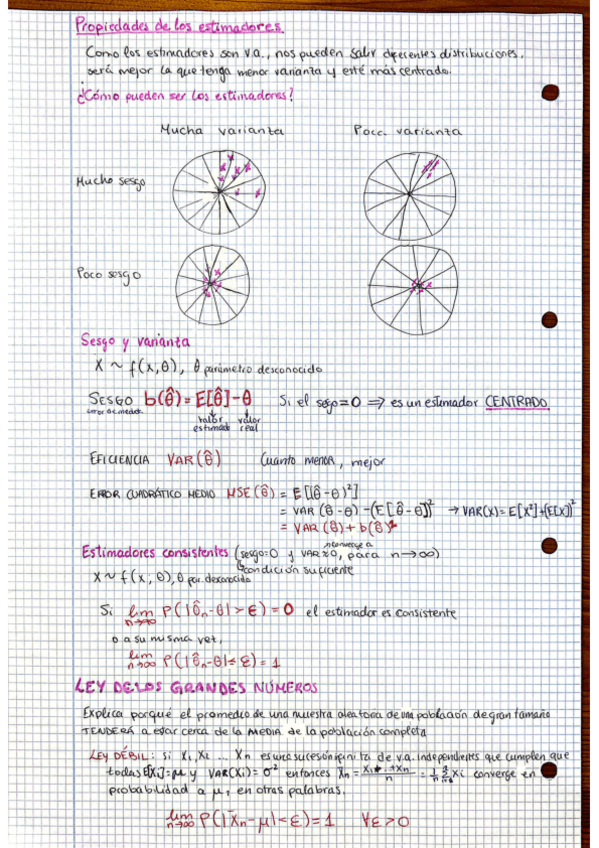 Propiedades de los estimadores.
Como los estimadores son v.a., nos pueden salir diferentes distribuciones.
será mejor la que tenga menor varianza y esté más centrado.
¿Cómo pueden ser los estimadores?
Mucha varianza Poca varianza
Mucho sesgo
Poco sesgo
Sesgo y varianza
X ~ f(x,θ), θ parámetro desconocido
SESGO b(θ̂) = E[θ̂] - θ Si el sesgo = 0 ⟹ es un estimador CENTRADO
error de medida
valor valor
estimado real
EFICIENCIA VAR(θ̂) Cuanto menor, mejor
ERROR CUADRÁTICO MEDIO MSE(θ̂) = E[(θ̂-θ)²]
= VAR(θ̂-θ) -(E[θ̂-θ])² → VAR(X) = E[X²]+(E[X])²
= VAR(θ̂) + b(θ̂)²
converge a
Estimadores consistentes (sesgo=0 y VAR≈0, para n→∞)
condición suficiente
X ~ f(x,θ), θ par. desconocido
Si lim P(|θ̂n-θ|>ε) = 0 el estimador es consistente
n→∞
o a su misma vez,
lim P(|θ̂n-θ|≤ε) = 1
n→∞
LEY DE LOS GRANDES NÚMEROS
Explica porqué el promedio de una muestra aleatoria de una población de gran tamaño
TENDERÁ a estar cerca de la MEDIA de la población completa
LEY DÉBIL: si X₁,X₂ ... Xn es una sucesión infinita de v.a. independientes que cumplen que
todas E[Xi]=μ y VAR(Xi)=σ² entonces X̄n = X₁+...+Xn/n = 1/n Σ Xi converge en
probabilidad a μ, en otras palabras.
lim P(|X̄n-μ|<ε)=1 ∀ε>0
n→∞